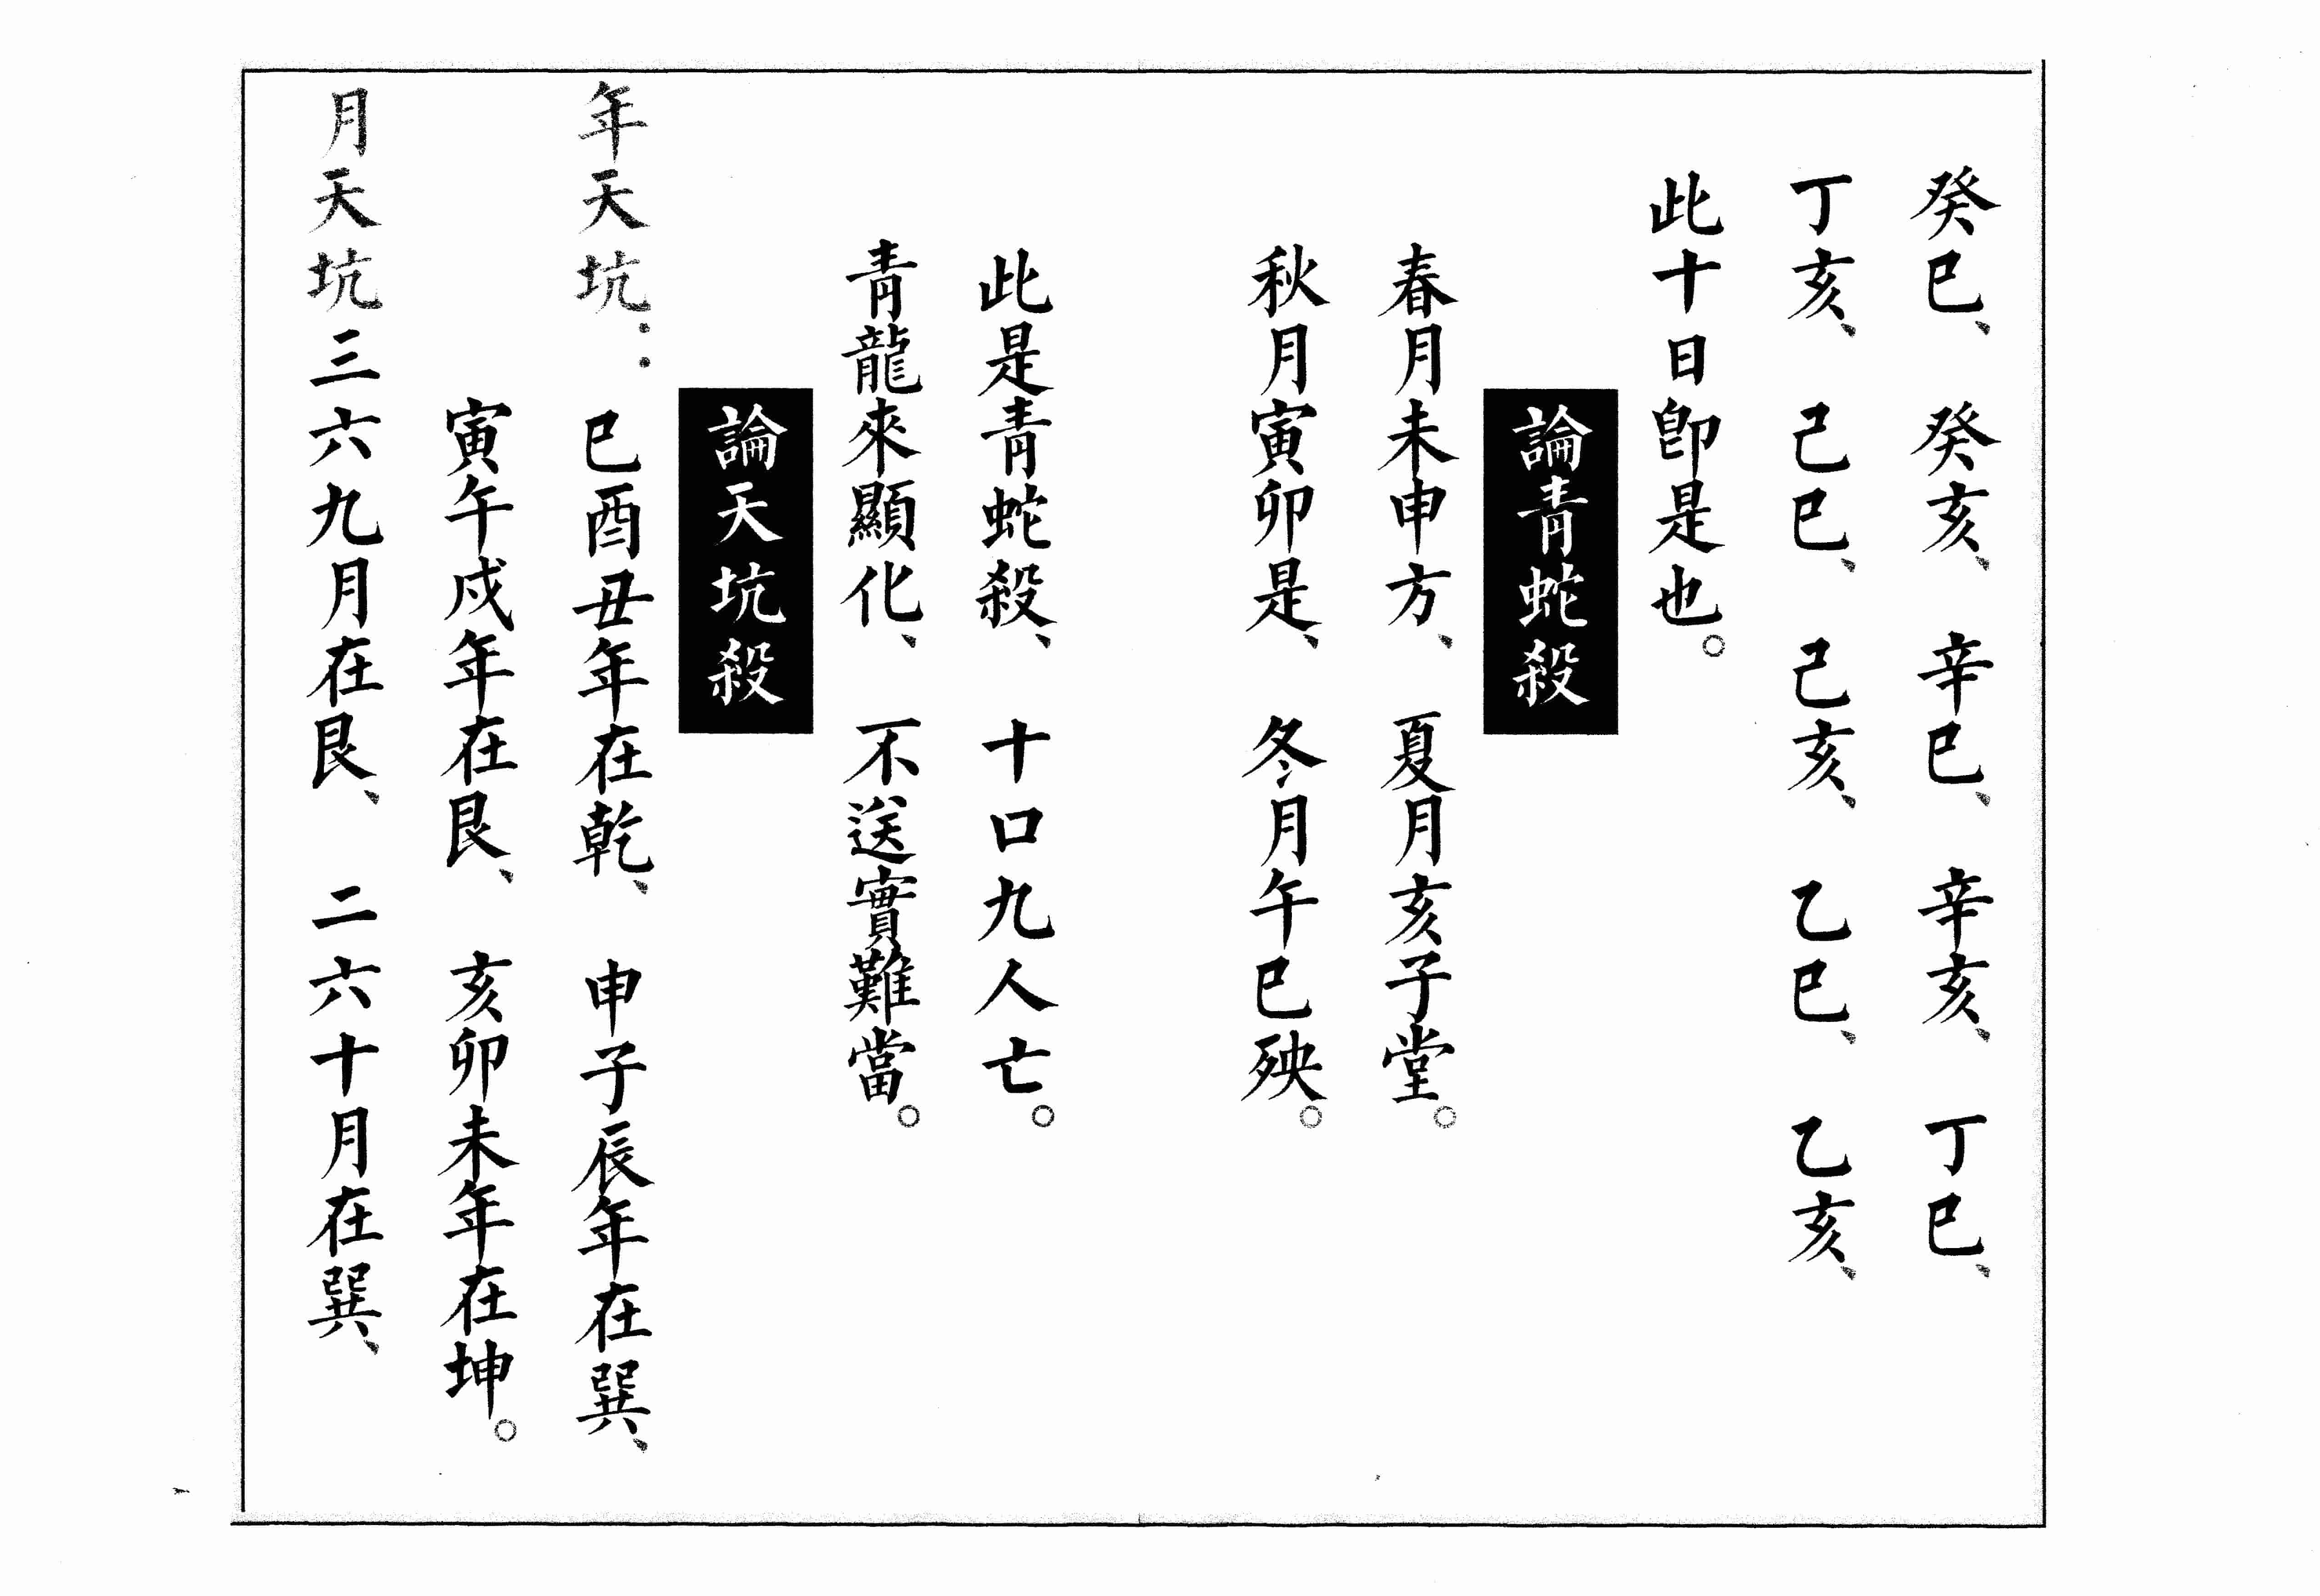 癸巳、　癸亥、　辛巳、　辛亥、　丁巳、
丁亥、　己巳、　己亥、　乙巳、　乙亥、
此十日卽是也。
論青蛇殺
春月未申方、　夏月亥子堂。
秋月寅卯是、　冬月午巳殃。
此是青蛇殺、　十口九人亡。
青龍來顯化、　不送實難當。
論天坑殺
年天坑：巳酉丑年在乾、　申子辰年在巽、
寅午戍年在艮、　亥卯未年在坤。
月天坑三六九月在艮、　二六十月在巽、